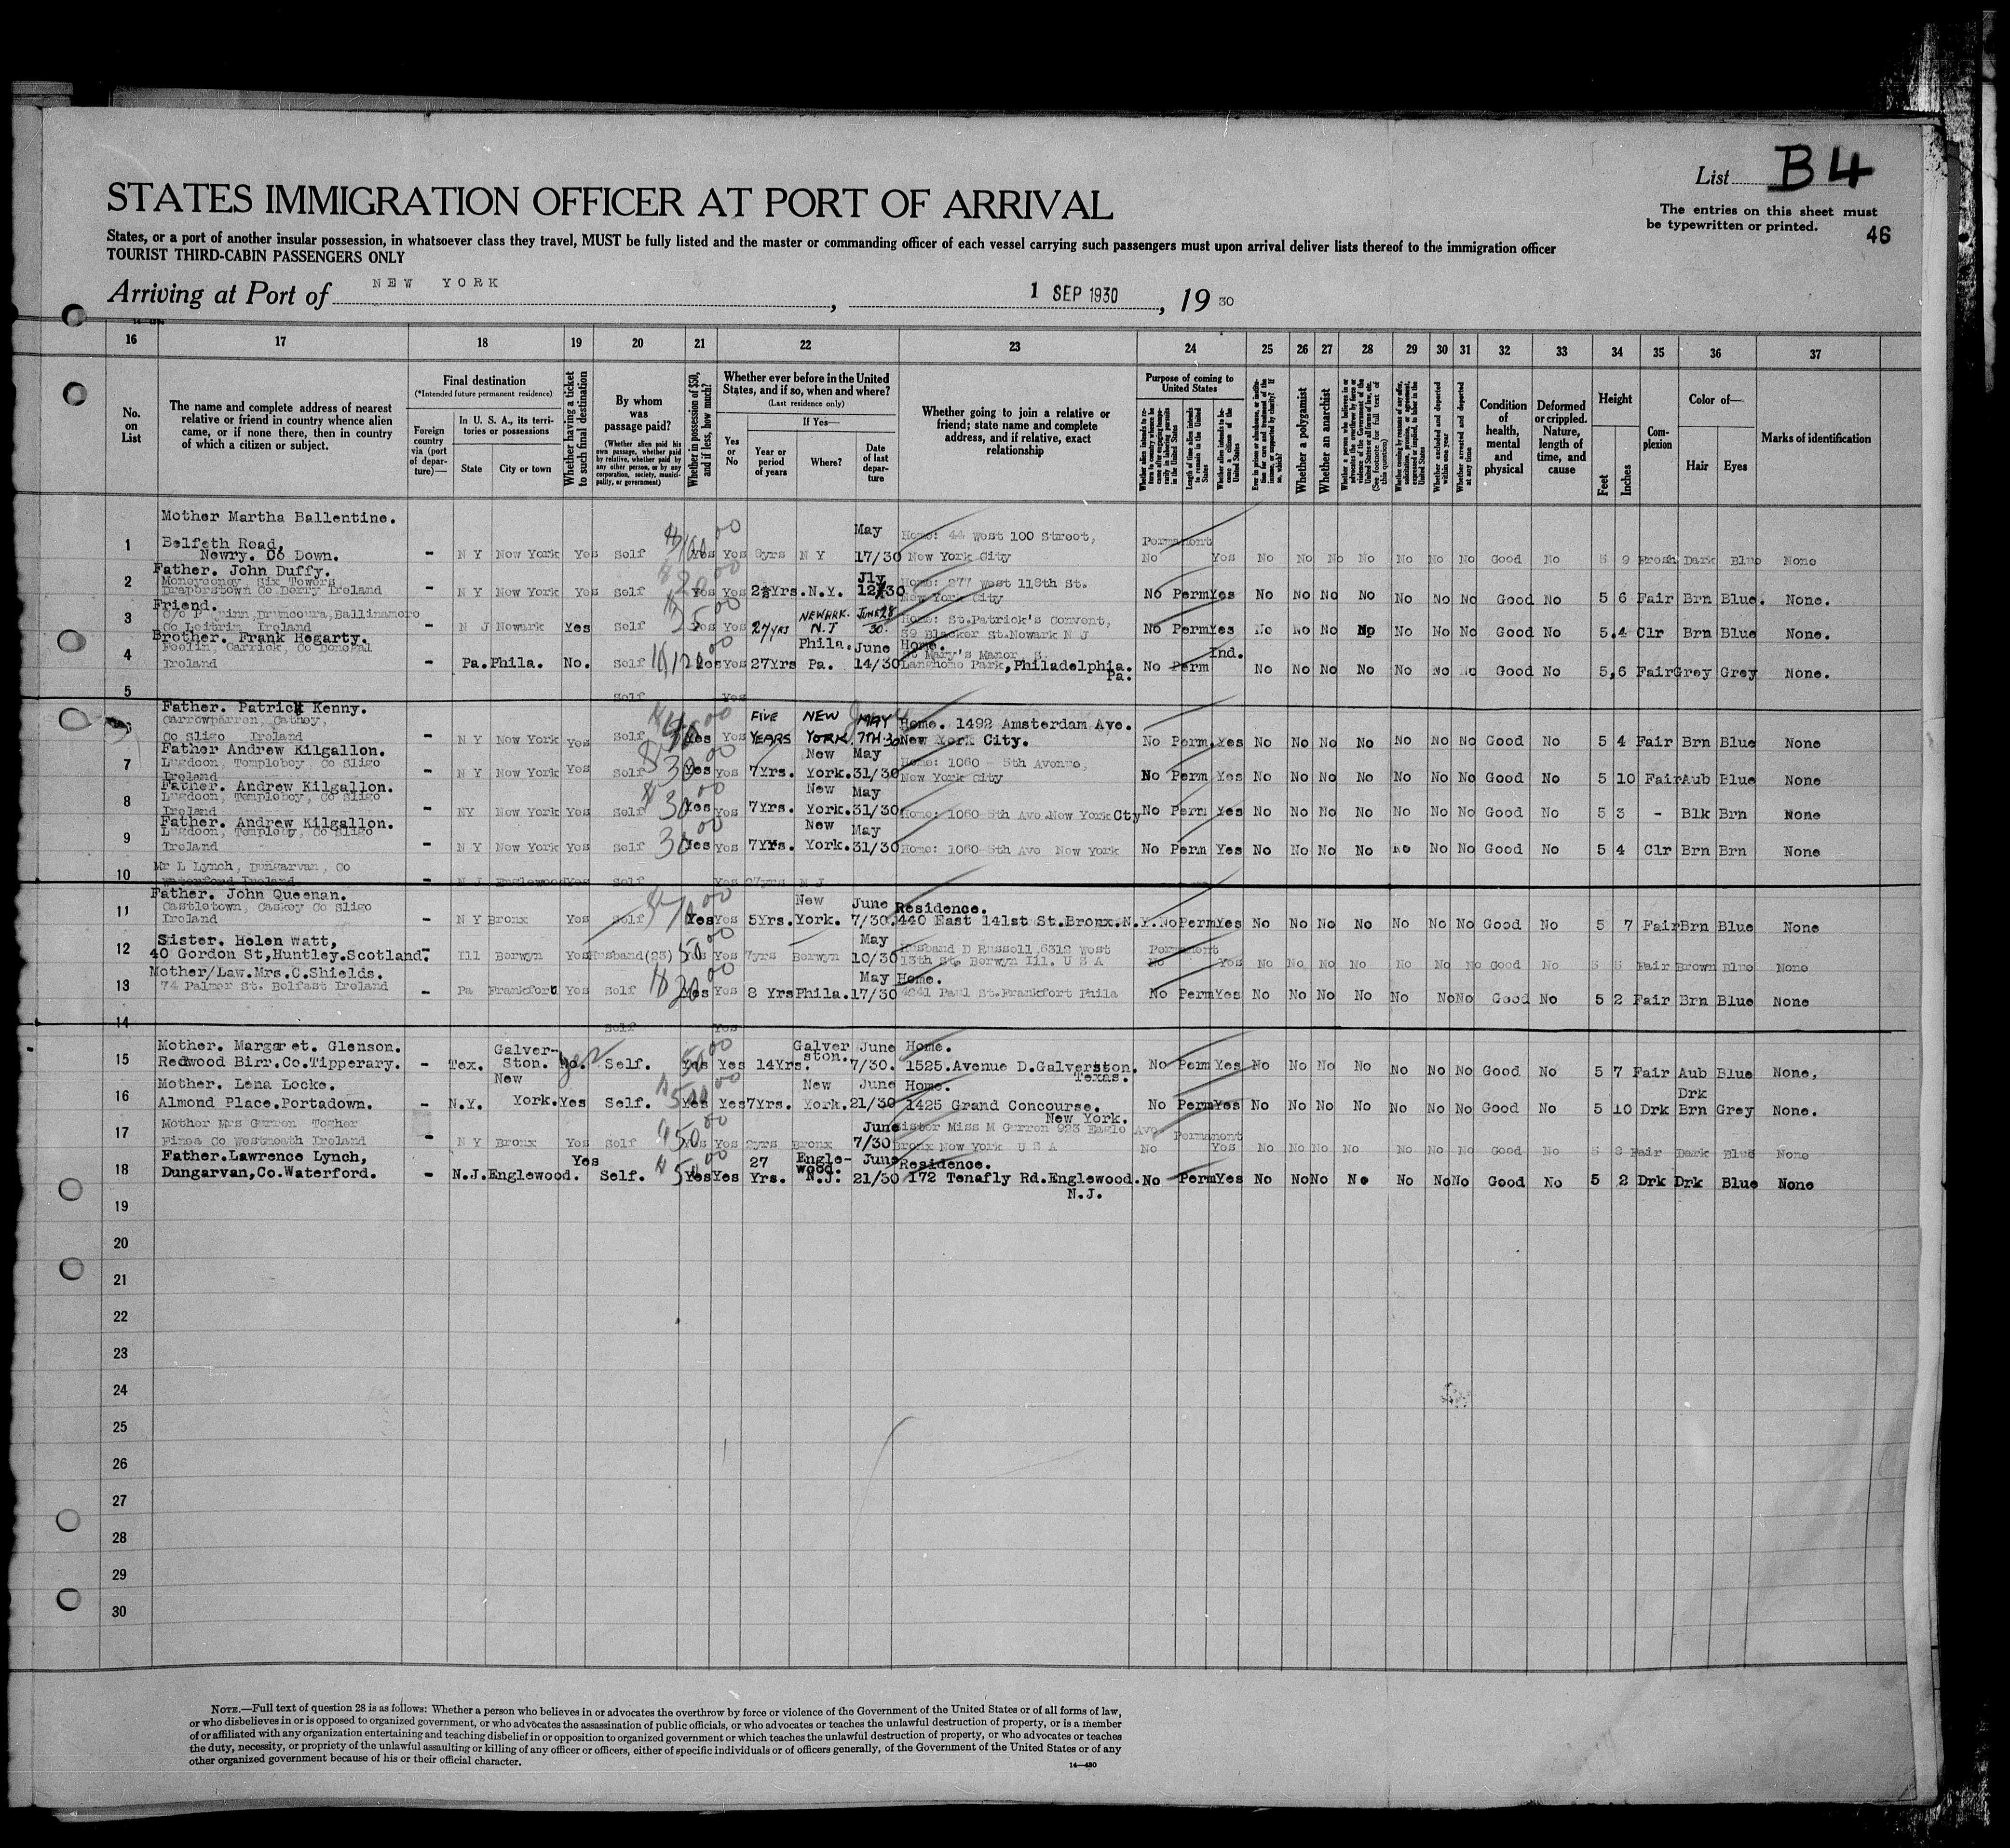 List B4
The entries on this sheet must
be typewritten or printed.
46
STATES IMMIGRATION OFFICER AT PORT OF ARRIVAL
States, or a port of another insular possession, in whatsoever class they travel, MUST be fully listed and the master or commanding officer of each vessel carrying such passengers must upon arrival deliver lists thereof to the immigration officer
TOURIST THIRD-CABIN PASSENGERS ONLY
Arriving at Port of NEW YORK, 1 SEP 1930, 19 30
16 17 18 19 20 21 22 23 24 25 26 27 28 29 30 31 32 33 34 35 36 37
No. on List
The name and complete address of nearest relative or friend in country whence alien came, or if none there, then in country of which a citizen or subject.
Final destination
(*Intended future permanent residence)
Foreign country via (port of departure)—
In U. S. A., its territories or possessions
State
City or town
Whether having a ticket to such final destination
By whom was passage paid?
(Whether alien paid his own passage, whether paid by relative, whether paid by any other person, or by any corporation, society, municipality, or government)
Whether in possession of $50, and if less, how much?
Whether ever before in the United States, and if so, when and where?
(Last residence only)
Yes or No
If Yes—
Year or period of years
Where?
Date of last departure
Whether going to join a relative or friend; state name and complete address, and if relative, exact relationship
Purpose of coming to United States
Length of time alien intends to remain in the United States
Whether alien intends to become a citizen of the United States
Whether a polygamist
Whether an anarchist
(See footnote for full text of this question)
Whether excluded and deported within one year
Whether arrested and deported at any time
Condition of health, mental and physical
Deformed or crippled. Nature, length of time, and cause
Height
Feet
Inches
Complexion
Color of—
Hair
Eyes
Marks of identification
Mother Martha Ballentine.
1 Belfeth Road, May Home: 44 West 100 Street, Permanent
Newry. Co Down. - N Y New York Yes Self Yes Yes 8yrs N Y 17/30 New York City No Yes No No No No No No No Good No 5 9 Fresh Dark Blue None
Father. John Duffy.
2 Moneyconey, Six Towers Jly Home: 277 West 118th St.
Draperstown Co Derry Ireland - N Y New York Yes Self Yes Yes 2½Yrs. N.Y. 12/30 New York City No Perm Yes No No No No No No No Good No 5 6 Fair Brn Blue. None.
Friend.
3 Drumcoura, Ballinamore NEWARK. JUNE 28 Home: St.Patrick's Convent,
Co Leitrim Ireland - N J Newark Yes Self Yes Yes 2YRS N.J 30. 39 Bleeker St.Newark N J No Perm Yes No No No No No No No Good No 5.4 Clr Brn Blue None.
Brother. Frank Hegarty. Phila. June Home.
4 Carrick, Co Donegal St Mary's Manor Ind.
Ireland - Pa. Phila. No. Self Yes 27Yrs Pa. 14/30 Langhome Park, Philadelphia. Pa. No Perm No No No No No No No Good No 5,6 Fair Grey Grey None.
5 Self Yes
Father. Patrick Kenny.
6 Carrowparren, Cathoy, FIVE NEW MAY Home. 1492 Amsterdam Ave.
Co Sligo Ireland - N Y New York Yes Self Yes Yes YEARS YORK. 7TH 30 New York City. No Perm. Yes No No No No No No No Good No 5 4 Fair Brn Blue None
Father Andrew Kilgallon. New May
7 Lugdoon, Templeboy, Co Sligo Home: 1060 - 5th Avenue,
Ireland - N Y New York Yes Self Yes Yes 7Yrs. York. 31/30 New York City No Perm Yes No No No No No No No Good No 5 10 Fair Aub Blue None
Father. Andrew Kilgallon. New May
8 Lugdoon, Templeboy, Co Sligo
Ireland - NY New York Yes Self $30.00 Yes Yes 7Yrs. York. 31/30 Home: 1060 5th Ave.New York Cty No Perm Yes No No No No No No No Good No 5 3 - Blk Brn None
Father. Andrew Kilgallon. New May
9 Lugdoon, Temploby, Co Sligo
Ireland - N Y New York Yes Self 30.00 Yes Yes 7Yrs. York. 31/30 Home: 1060-5th Ave New York No Perm Yes No No No No No No No Good No 5 4 Clr Brn Brn None
10 Mr L Lynch, Dungarvan, Co
Waterford Ireland - N J Englewood Yes Self Yes 27yrs N J
Father. John Queenan. New June Residence.
11 Castletown, Easkey Co Sligo
Ireland - N Y Bronx Yes Self Yes Yes 5Yrs. York. 7/30. 440 East 141st St.Bronx.N.Y. No Perm Yes No No No No No No No Good No 5 7 Fair Brn Blue None
12 Sister. Helen Watt, May Husband D Russell, 6312 West Permanent
40 Gordon St,Huntley.Scotland. - Ill Berwyn Yes Husband(23) 50.00 Yes Yes 7yrs Berwyn 10/30 13th St. Berwyn Ill. U S A No Yes No No No No No No No Good No 5 5 Fair Brown Blue None
Mother/Law.Mrs.C.Shields. May Home.
13 74 Palmer St. Belfast Ireland - Pa Frankfort Yes Self Yes Yes 8 Yrs Phila. 17/30 4241 Paul St.Frankfort Phila No Perm Yes No No No No No No No Good No 5 2 Fair Brn Blue None
14 Self Yes
Mother. Margaret. Glenson. Galver- Galver June Home.
15 Redwood Birr.Co.Tipperary. - Tex. Ston. No. yes Self. 50.00 Yes Yes 14Yrs. ston. 7/30. 1525.Avenue D.Galverston. Texas. No Perm Yes No No No No No No No Good No 5 7 Fair Aub Blue None,
Mother. Lena Locke. New New June Home. Drk
16 Almond Place.Portadown. - N.Y. York. Yes Self. Yes Yes 7Yrs. York. 21/30 1425 Grand Concourse. New York. No Perm Yes No No No No No No No Good No 5 10 Drk Brn Grey None.
17 Mother Mrs Gurren Togher June Sister Miss M Gurren 923 Eagle Ave Permanent
Finea Co Westmeath Ireland - N Y Bronx Yes Self 50.00 Yes Yes 2yrs Bronx 7/30 Bronx New York U S A No Yes No No No No No No No Good No 5 3 Fair Dark Blue None
Father.Lawrence Lynch, Yes 27 Engle- June Residence.
18 Dungarvan,Co.Waterford. - N.J. Englewood. Self. Yes Yes Yrs. wood. N.J. 21/30 172 Tenafly Rd.Englewood. N.J. No Perm Yes No No No No No No No Good No 5 2 Drk Drk Blue None
19
20
21
22
23
24
25
26
27
28
29
30
NOTE.—Full text of question 28 is as follows: Whether a person who believes in or advocates the overthrow by force or violence of the Government of the United States or of all forms of law,
or who disbelieves in or is opposed to organized government, or who advocates the assassination of public officials, or who advocates or teaches the unlawful destruction of property, or is a member
of or affiliated with any organization entertaining and teaching disbelief in or opposition to organized government or which teaches the unlawful destruction of property, or who advocates or teaches
the duty, necessity, or propriety of the unlawful assaulting or killing of any officer or officers, either of specific individuals or of officers generally, of the Government of the United States or of any
other organized government because of his or their official character.
14—430